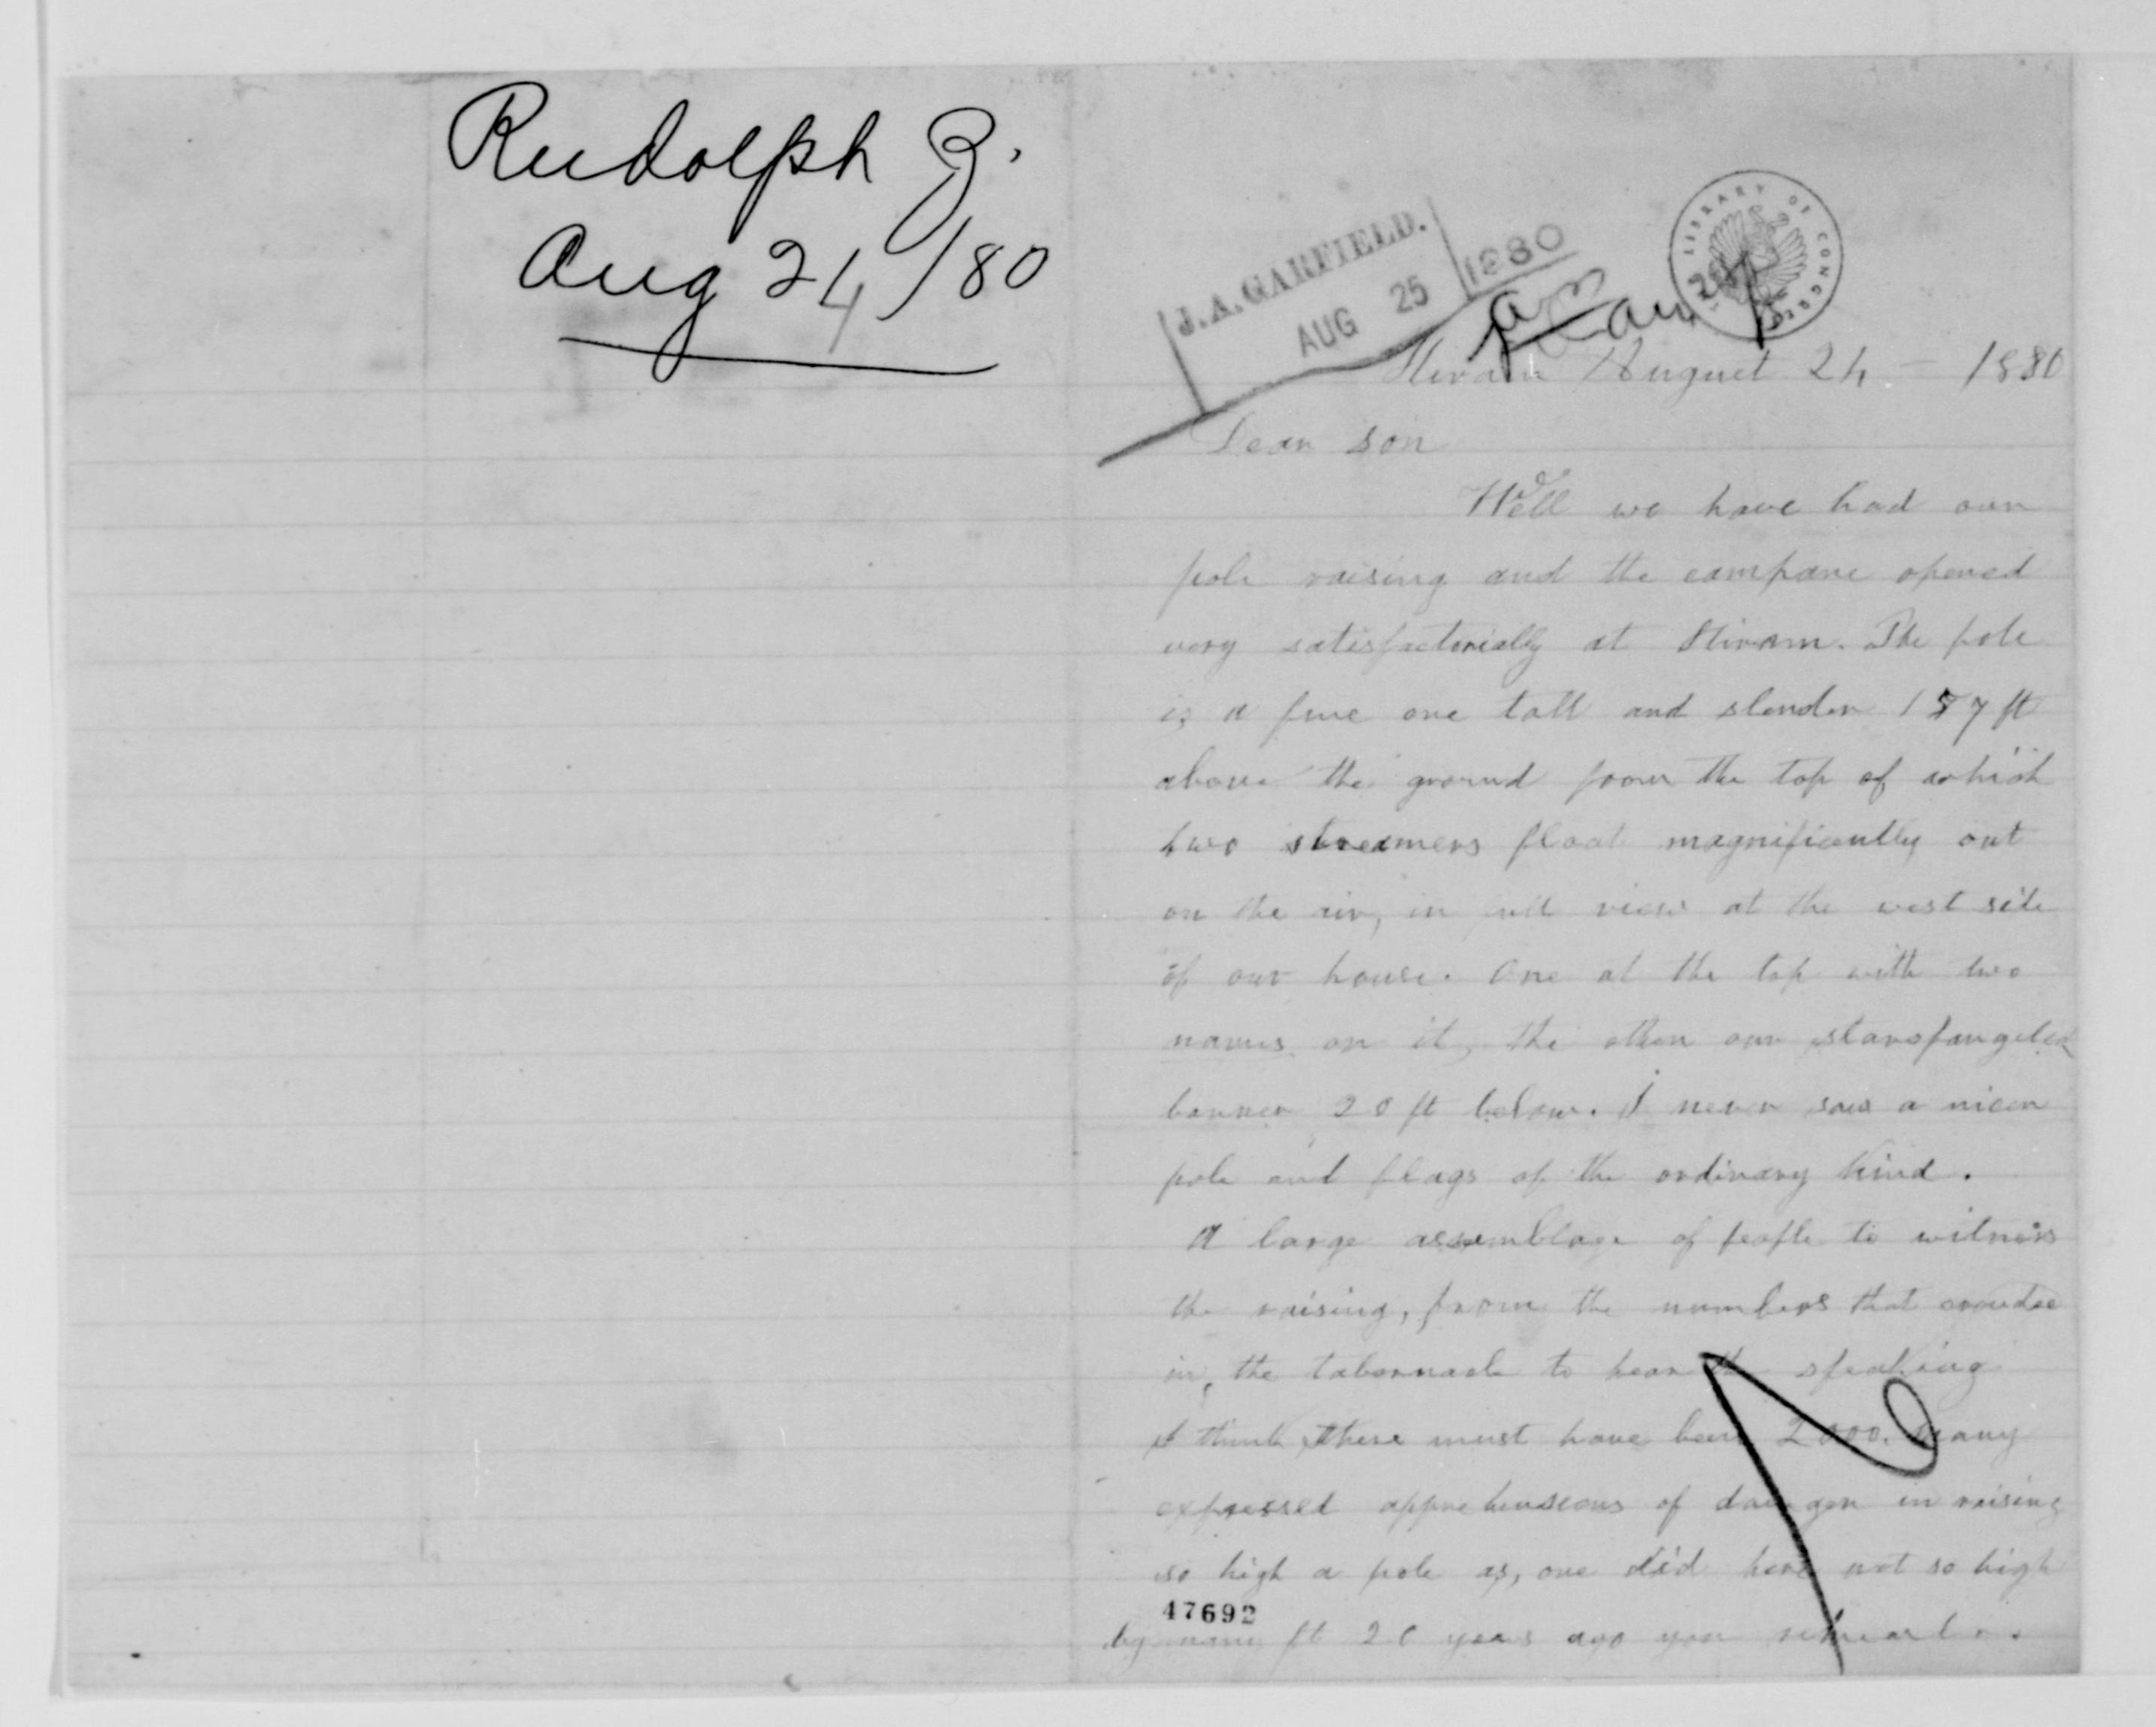 Rudolph Z.
Aug 24/80
J. A. GARFIELD.
AUG 25 1880
LIBRARY OF CONGRESS
Hiram August 24 - 1880
Dear son
Well we have had our
pole raising and the campane opened
very satisfactorially at Hiram. The pole
is a fine one tall and slender 157 ft
above the ground from the top of which
two streamers float magnificently out
on the air, in full view at the west side
of our house. One at the top with two
names on it, the other our starspangeled
banner 20 ft below. I never saw a nicer
pole and flags of the ordinary kind.
A large assemblage of people to witness
the raising, from the numbers that crowded
in, the tabernacle to hear the speaking
I think there must have been 2000. Many
expressed apprehensions of danger in raising
so high a pole as, one did here not so high
47692
by many ft 20 years ago you remember.